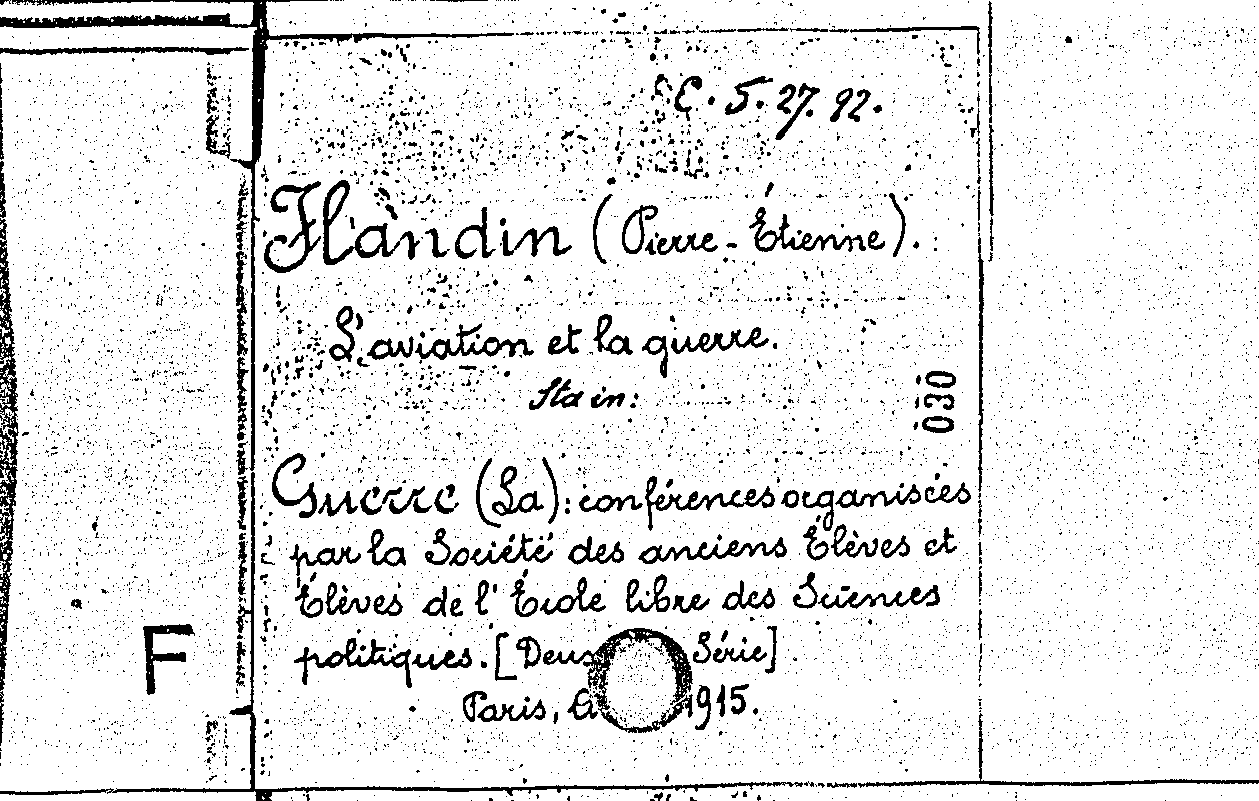 C. 5. 27. 92.
Flandin (Pierre-Étienne).
L'aviation et la guerre.
Sta in:
030
Guerre (La): conférences organisées
par la Société des anciens Élèves et
Élèves de l'École libre des Sciences
politiques. [Deux Série]
Paris, 1915.
F